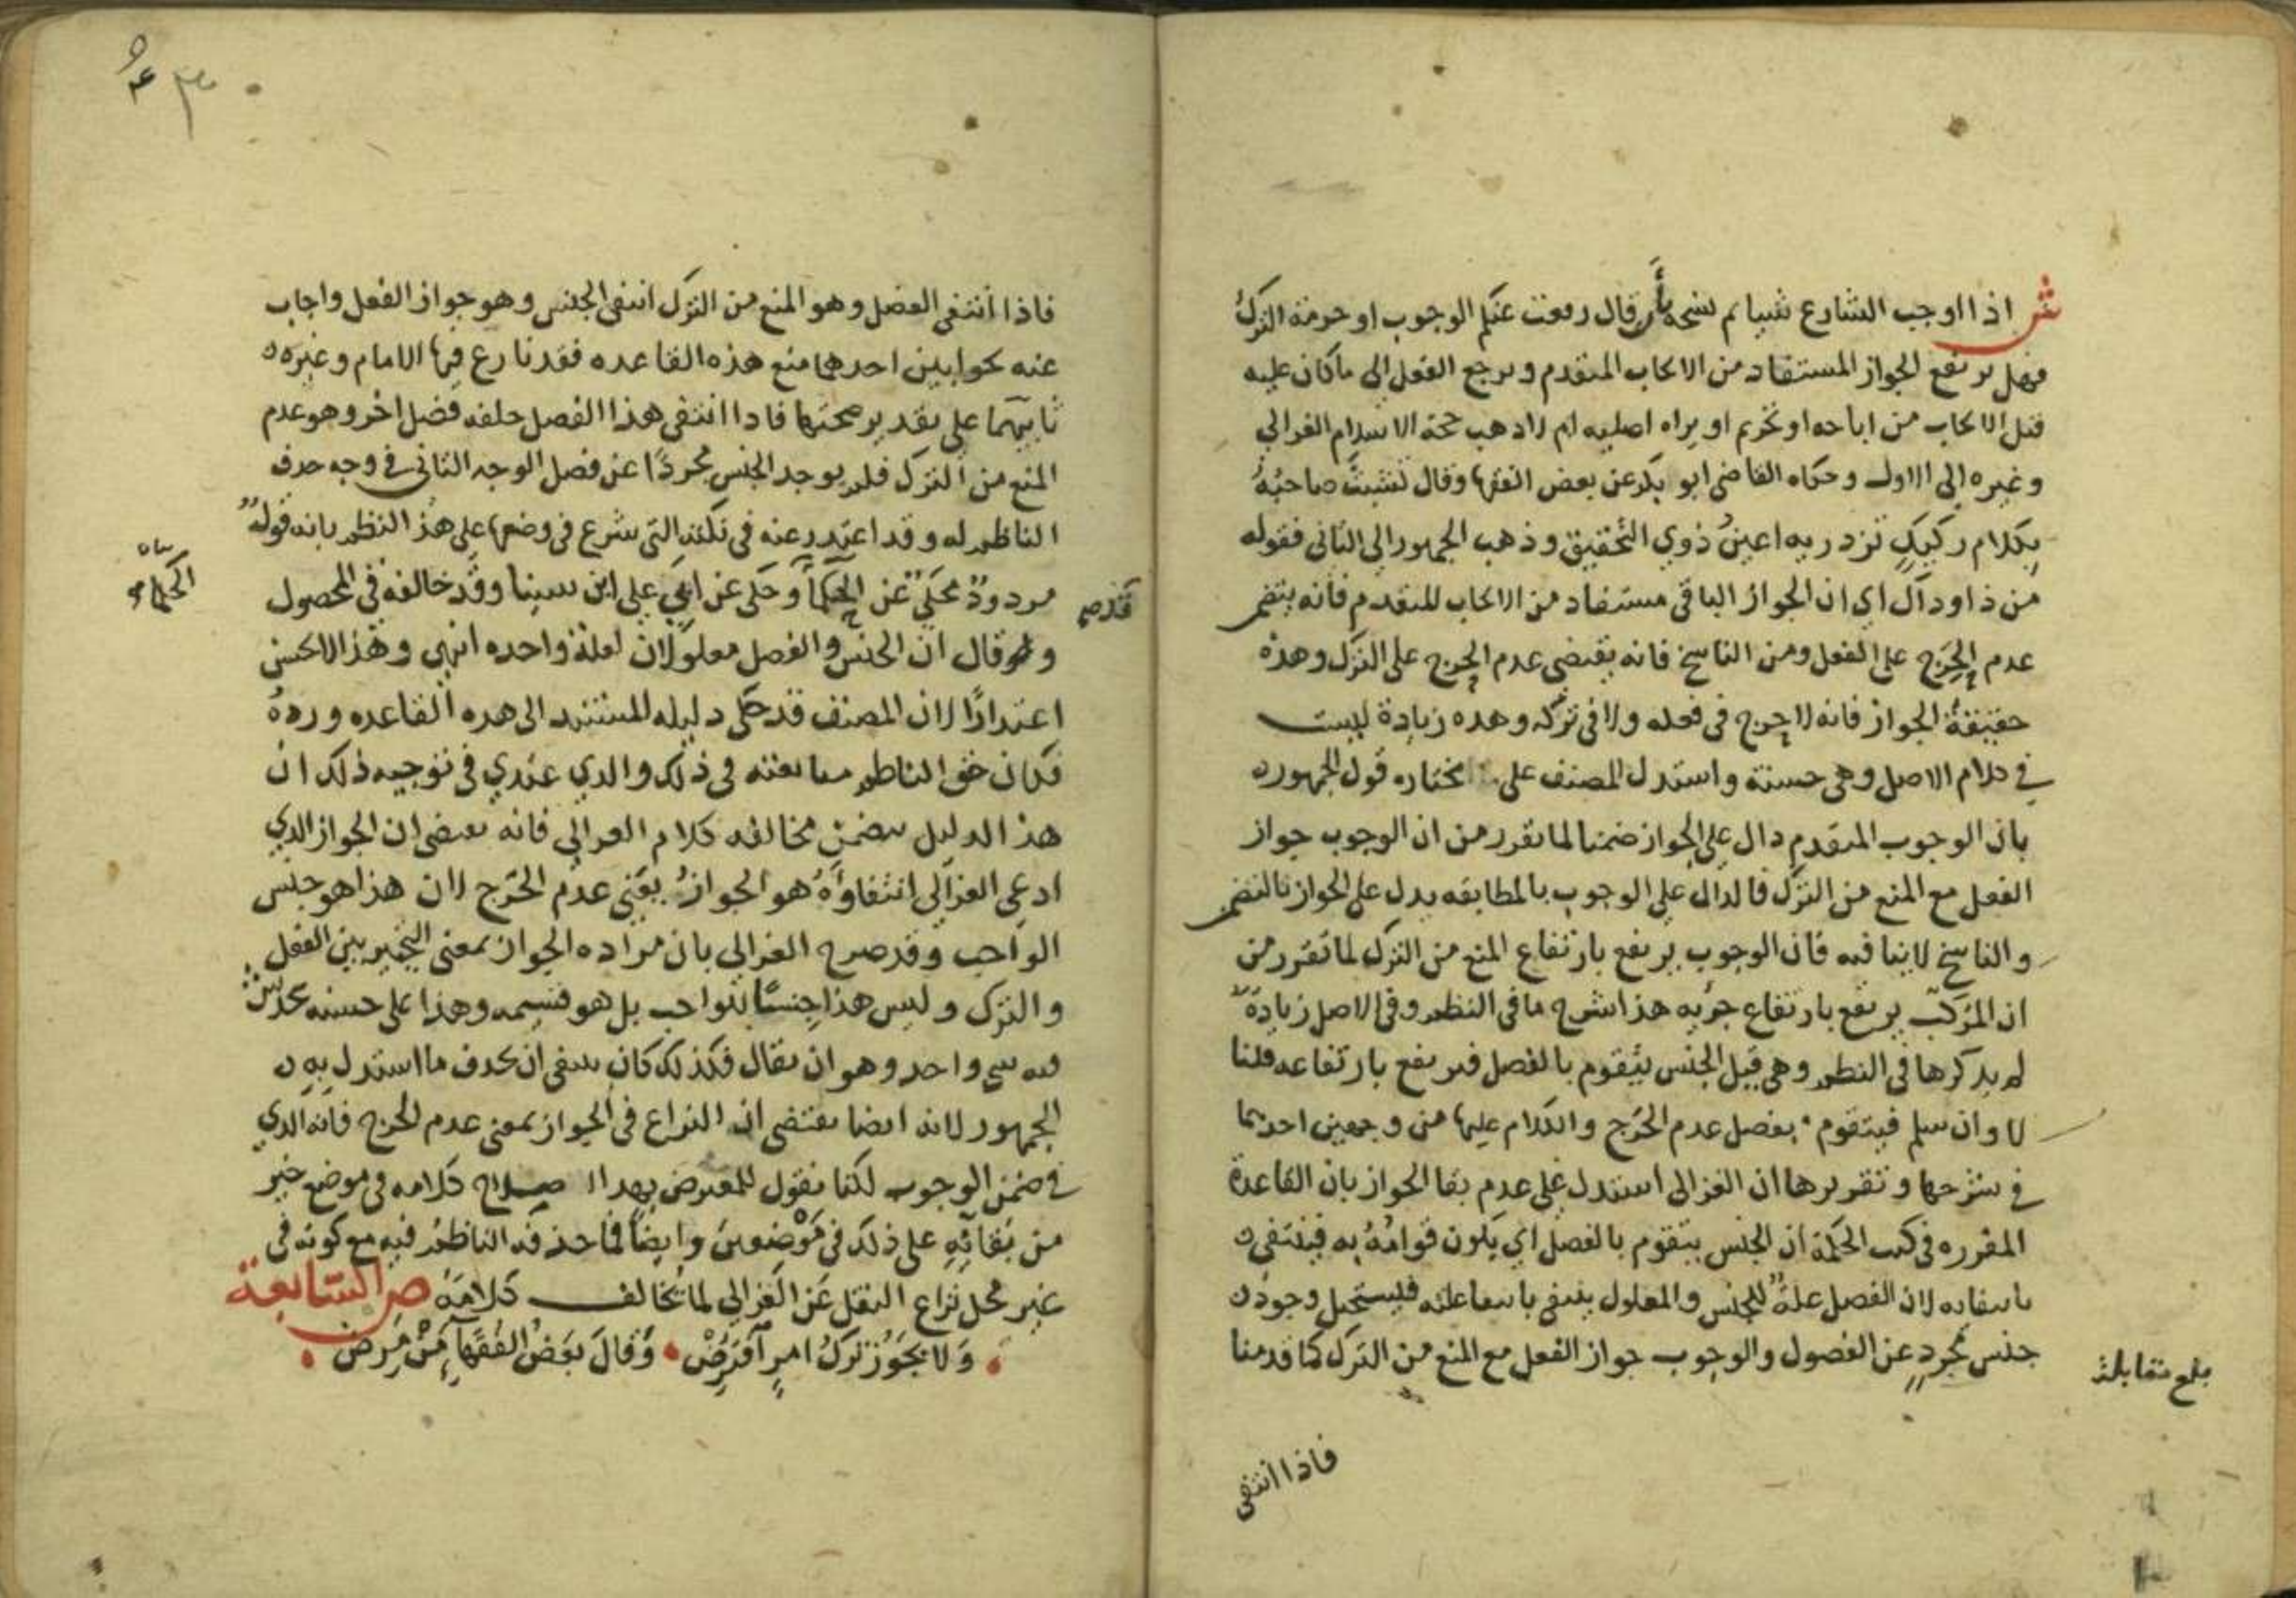 ش اذا اوجب الشارع شيا ثم نسخه بأن قال رفعت عنكم الوجوب او حرمة الترك
فهل يرتفع الجواز المستفاد من الايجاب المتقدم ويرجع الفعل الى ماكان عليه
قبل الايجاب من اباحه او تحريم او براه اصليه ام لا ذهب حجة الاسلام الغزالي
وغيره الى الاول وحكاه القاضي ابو بكر عن بعض الفقها وقال تشبث صاحبُهُ
بكلام ركيكٍ تزدريه اعينُ ذوي التحقيق وذهب الجمهور الى الثاني فقوله
من ذا ودآك اي ان الجواز الباقي مستفاد من الايجاب المتقدم فانه يتضمن
عدم الحَرَج على الفعل ومن الناسخ فانه يقتضي عدم الحرج على الترك وهذه
حقيقةُ الجواز فانه لا حرج في فعله ولا في تركه وهده زيادة ليست
في كلام الاصل وهي حسنة واستدل المصنف على مختاره قول الجمهور
بان الوجوب المتقدم دال على الجواز ضمنا لما تقرر من ان الوجوب جواز
الفعل مع المنع من الترك فالدال على الوجوب بالمطابقه يدل على الجواز بالتضمن
والناسخ لاينافيه فان الوجوب يرتفع بارتفاع المنع من الترك لما تقرر من
ان المركّب يرتفع بارتفاع جزيه هذا شرح ما في النظم وفي الاصل زيادةٌ
لم يذكرها في النظم وهي قيل الجنس يتقوم بالفصل فيرتفع بارتفاعه قلنا
لا وان سلم فيتقوم بفصل عدم الحَرَج والكلام عليها من وجهين احدهما
في شرحها وتقريرها ان الغزالي استدل على عدم بقا الجواز بان القاعدة
المقرره في كتب الحكمة ان الجنس يتقوم بالفصل اي يكون قوامُهُ به فينتفي
بانتفايه لان الفصل علةٌ للجنس والمعلول ينتفي بانتفا علته فيستحيل وجود
جنس مجردٍ عن الفصول والوجوب جواز الفعل مع المنع من الترك كما قدمنا
بلغ مقابلة
فاذا انتفى
فاذا انتفى الفصل وهو المنع من الترك انتفى الجنس وهو جواز الفعل واجاب
عنه بجوابين احدهما منع هذه القاعده فقد نازع فيها الامام وغيره
ثانيهما على تقدير صحتها فاذا انتفى هذا الفصل خلفه فصل اخر وهو عدم
المنع من الترك فلم يوجد الجنس مجردًا عن فصل الوجه الثاني في وجه حذف
الناظم له وقد اعتذر عنه في نكته التي شرع في وضعها على هذ النظم بانه قولٌ
مردودٌ محكيٌ عن الحكما وحكى عن ابي علي ابن سينا وقد خالفه في المحصول
الحكما
قد صح
وقال ان الجنس والفصل معلولان لعلة واحده انتهى وهذا لا يحسن
اعتذارًا لان المصنف قد حكى دليله المستند الى هده القاعده وردهُ
فكان حق الناظم متابعته في ذلك والدي عندي في توجيه ذلك ان
هذا الدليل يتضمن مخالفه كلام الغزالي فانه يقتضي ان الجواز الدي
ادعى الغزالي انتفاوَهُ هو الجوازُ يعني عدم الحَرَج لان هذا هو جنس
الواجب وقد صرح الغزالي بان مراده الجواز بمعنى التخيير بين الفعل
والترك وليس هذا جنسًا للواجب بل هو قسيمه وهذا على حسنه يخدش
فيه شي واحد وهو ان يقال فكذلك كان ينبغي ان يحذف ما استدل به
الجمهور لانه ايضا يقتضي ان النزاع في الجواز بمعنى عدم الحرج فانه الدي
في ضمن الوجوب لكنا نقول المعترض بهدا كلامه في موضع خير
من بقائِهِ على ذلك في مَوْضِعين وايضاً فما حذفه الناظم فيه مع كونه في
غير محل نزاع النقل عَن الغزالي لما يخالف كَلامَهُ ص السَّابعة
وَلا يَجوُز تركُ امرٍ اُفترِضْ • وَقالَ بَعضُ الفُقَهآءِ مَنْ مَرِض •